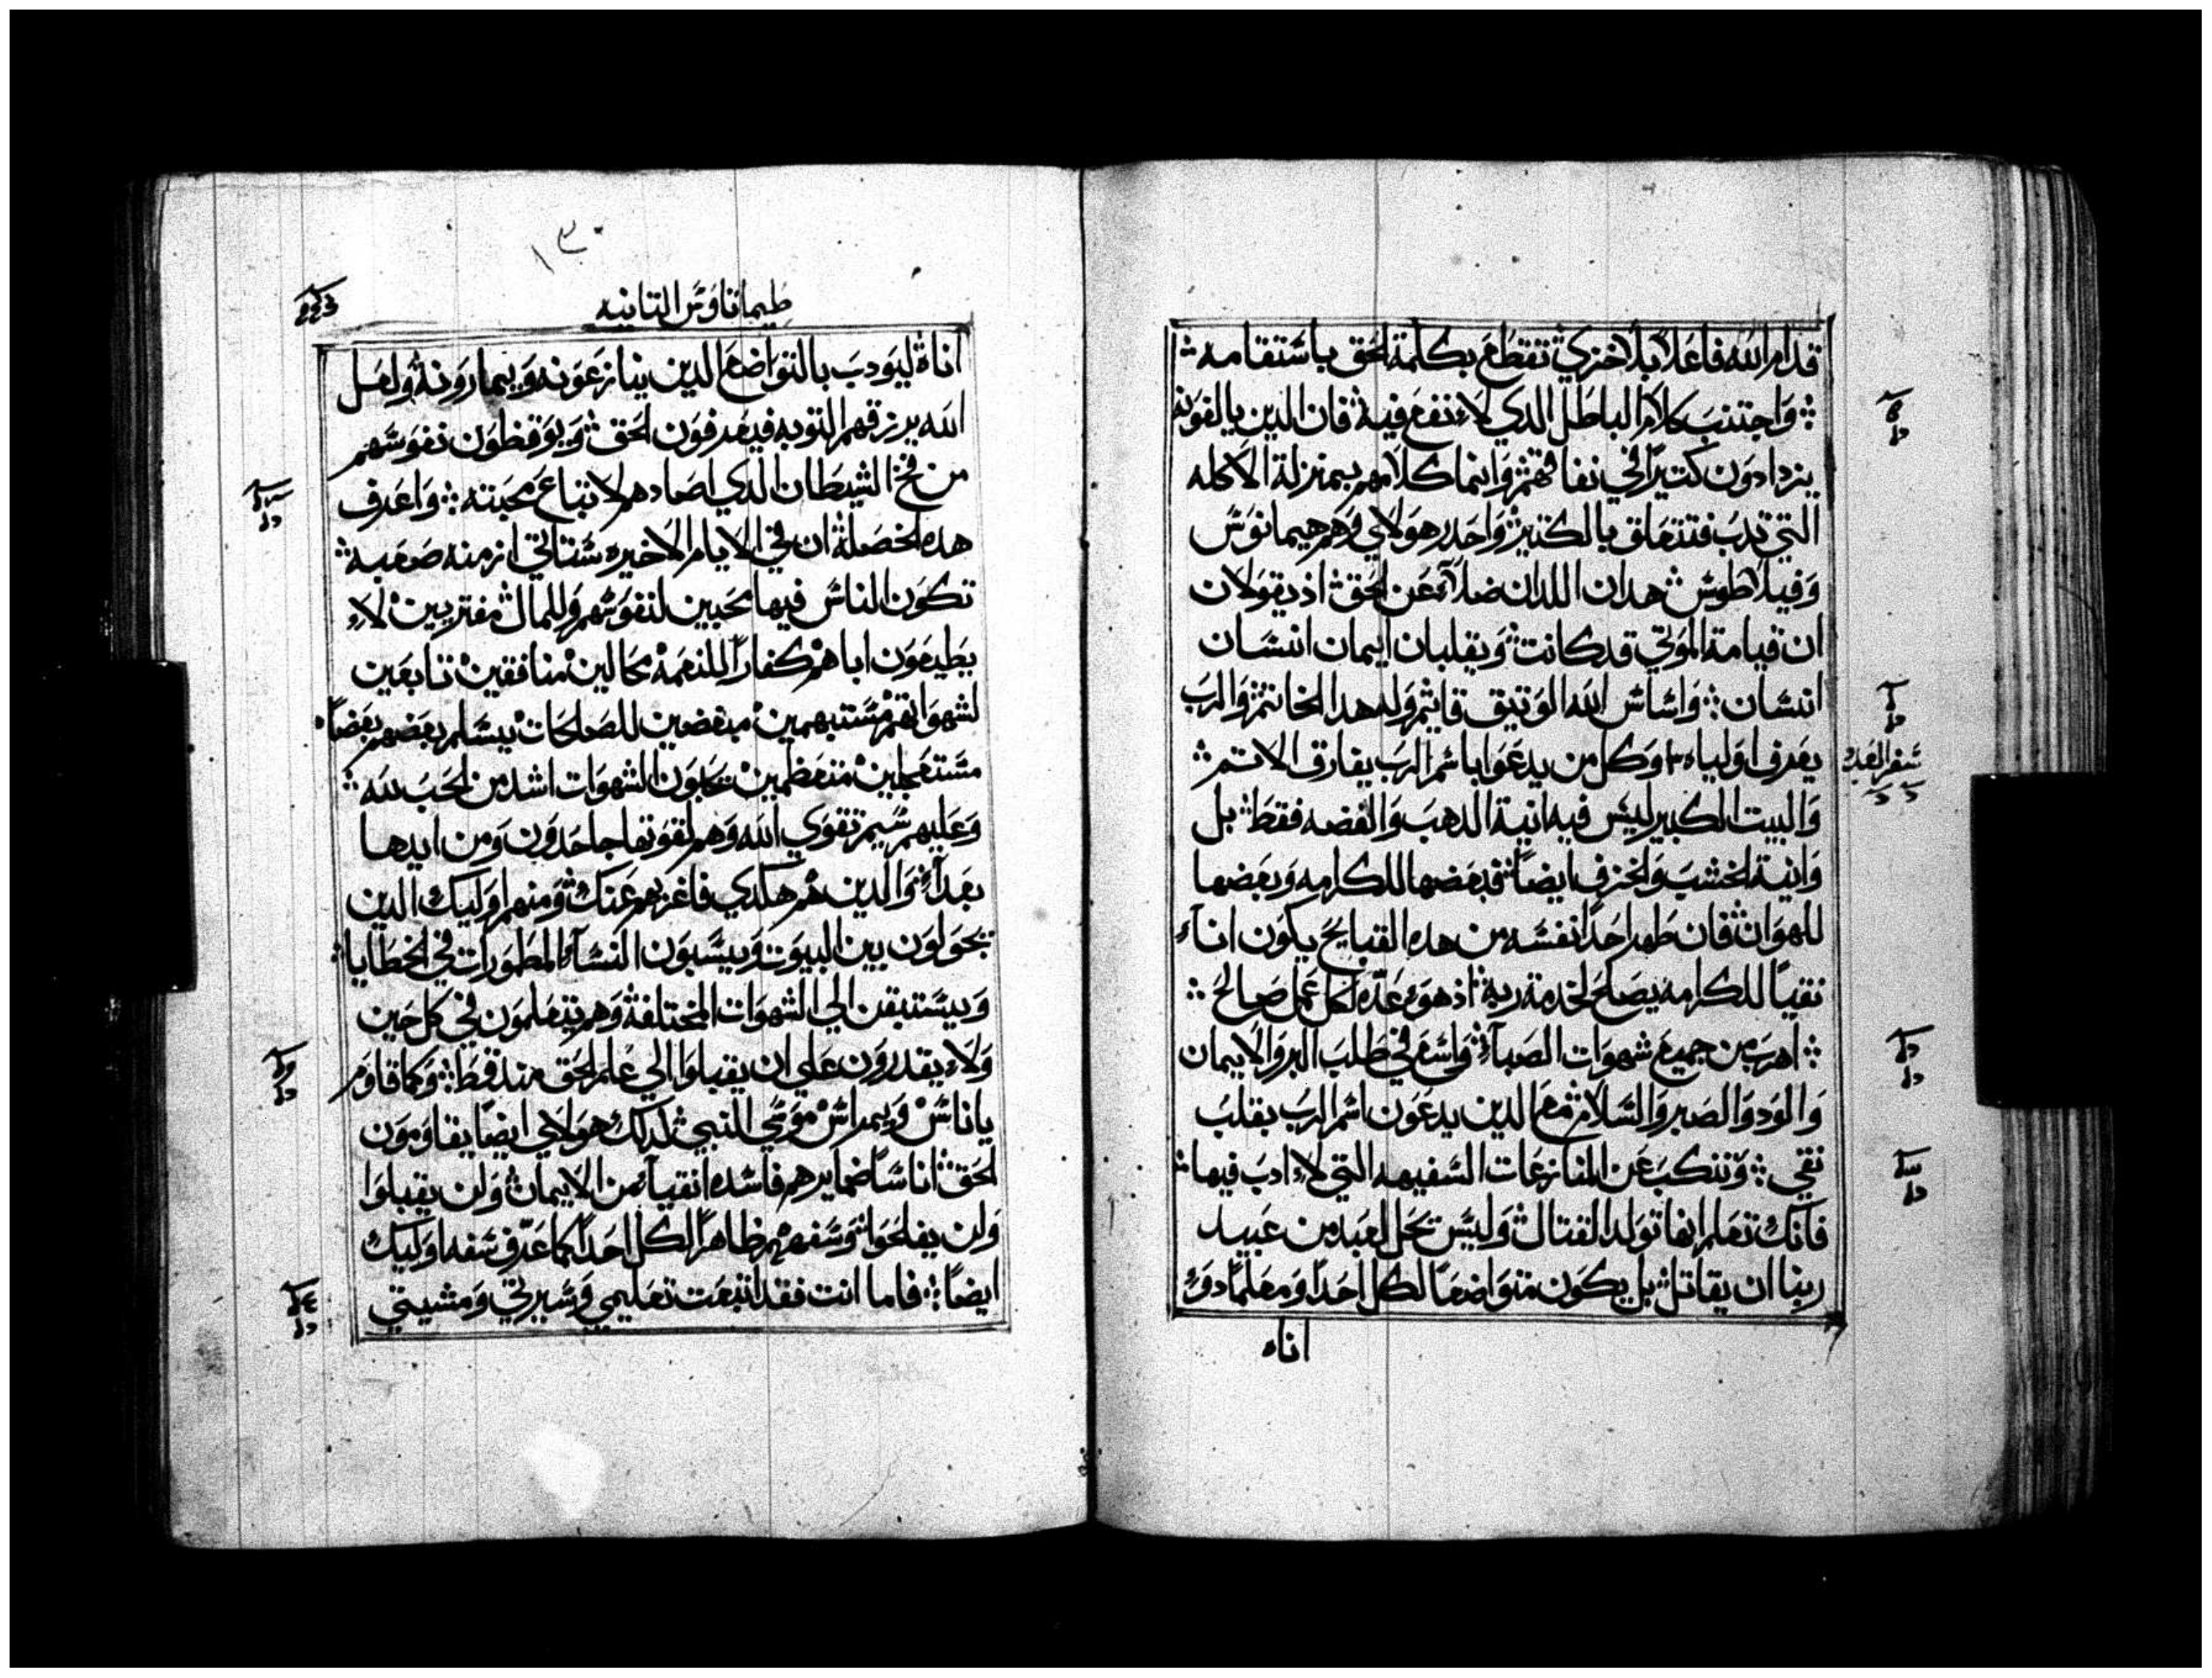 قدام الله فاعلاً بلا خزي تقطع بكلمة الحق باستقامه
واجتنب كلام الباطل الدي لا نفع فيه فان الدين يالفونه
يزدادون كتيراً في نفاقهم وانما كلامهم بمنزلة الاكله
التي تدب فتتعلق بالكتير واحد هولاي وهم هيمانوس
وفيلاطوس هدان اللدان ضلا عن الحق اد يقولان
ان قيامة الموتي قد كانت ويقلبان ايمان انسان
انسان واساس الله الوتيق قايم وله هدا الخاتم والرب
يعرف اولياه وكل من يدعوا باسم الرب يفارق الاتم
سفر العدد
والبيت الكبير ليس فيه انية الدهب والفضه فقط بل
وانية الخشب والخزف ايضاً فبعضها للكرامه وبعضها
للهوان فان طهر احداً نفسه من هده القبايح يكون اناً
نقياً للكرامه يصلح لخدمة ربه اد هو عده لكل عمل صالح
اهرب من جميع شهوات الصبا واسع في طلب البر والايمان
والود والصبر والسلام مع الدين يدعون اسم الرب بقلب
نقي وتنكب عن المنازعات السفيهه التي لا ادب فيها
فانك تعلم انها تولد القتال وليس يحل لعبد من عبيد
ربنا ان يقاتل بل يكون متواضعاً لكل احد ومعلماً دو
اناه
١٣٠
طيماتاوس التانيه
اناة ليودب بالتواضع الدين ينازعونه ويمارونه ولعل
الله يرزقهم التوبه فيعرفون الحق ويوقظون نفوسهم
من فخ الشيطان الدي اصادهم لاتباع محبته واعرف
هده الخصلة ان في الايام الاخيره ستاتي ازمنه صعبه
تكون الناس فيها محبين لنفوسهم وللمال مفتريين لا
يطيعون اباهم كفاراً للنعمه محالين منافقين تابعين
لشهواتهم مستبهمين مبغضين للصالحات يسلم بعضهم بعضاً
مستعجلين متعظمين يحبون الشهوات اشد من الحب لله
وعليهم سيم تقوي الله وهم لقوتها جاحدون ومن ايدها
بعدآ والدين هم هكدي فاغربهم عنك ومنهم اوليك الدين
يجولون بين البيوت ويسبون النسآ المطمورات في الخطايا
ويستبقن الي الشهوات المختلفة وهم يتعلمون في كل حين
ولا يقدرون علي ان يقبلوا الي علم الحق مند قط وكما قاوم
ياناس ويمراس موسي النبي كدلك هولاي ايضاً يقاومون
الحق اناساً ضمايرهم فاسده انقيآ من الايمان ولن يقبلوا
ولن يفلحوا وسفههم ظاهراً لكل احد كما عرف سفه اوليك
ايضاً فاما انت فقد اتبعت تعليمي وسيرتي ومشيتي